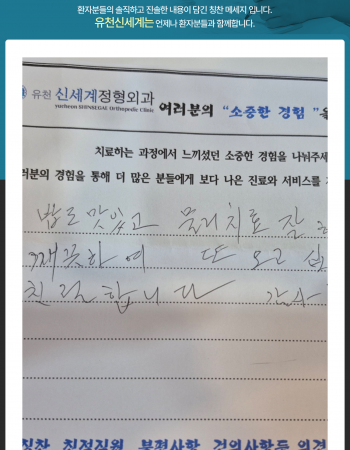 환자분들의 솔직하고 진솔한 내용이 담긴 칭찬 메세지 입니다.
유천신세계는 언제나 환자분들과 함께합니다.
유천 신세계정형외과
Yucheon SHINSEGAE Orthopedic Clinic
여러분의 "소중한 경험"을
치료하는 과정에서 느끼셨던 소중한 경험을 나눠주세
러분의 경험을 통해 더 많은 분들에게 보다 나은 진료와 서비스를
밥도 맛있고 물리치료 잘
깨끗하여 또 오고
친절합니다 감사
칭찬 친절직원, 불편사항, 건의사항등 의견